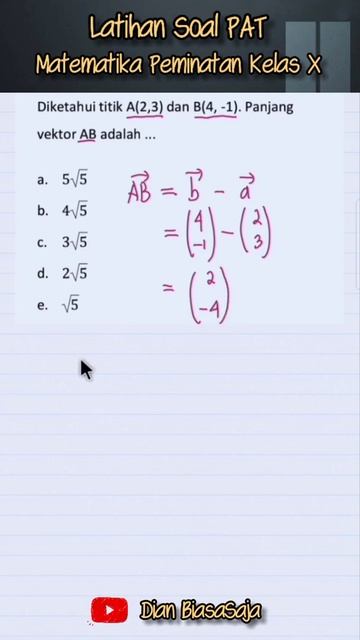 Latihan Soal PAT
Matematika Peminatan Kelas X
Diketahui titik A(2,3) dan B(4, -1). Panjang
vektor AB adalah ...
a. 5√5
b. 4√5
c. 3√5
d. 2√5
e. √5
AB = b - a
= (4 -1) - (2 3)
= (2 -4)
Dian BiasaSaja